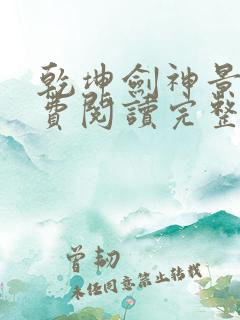 乾坤劍神景
費閱讀完整
曾韌
未經同意禁止轉載